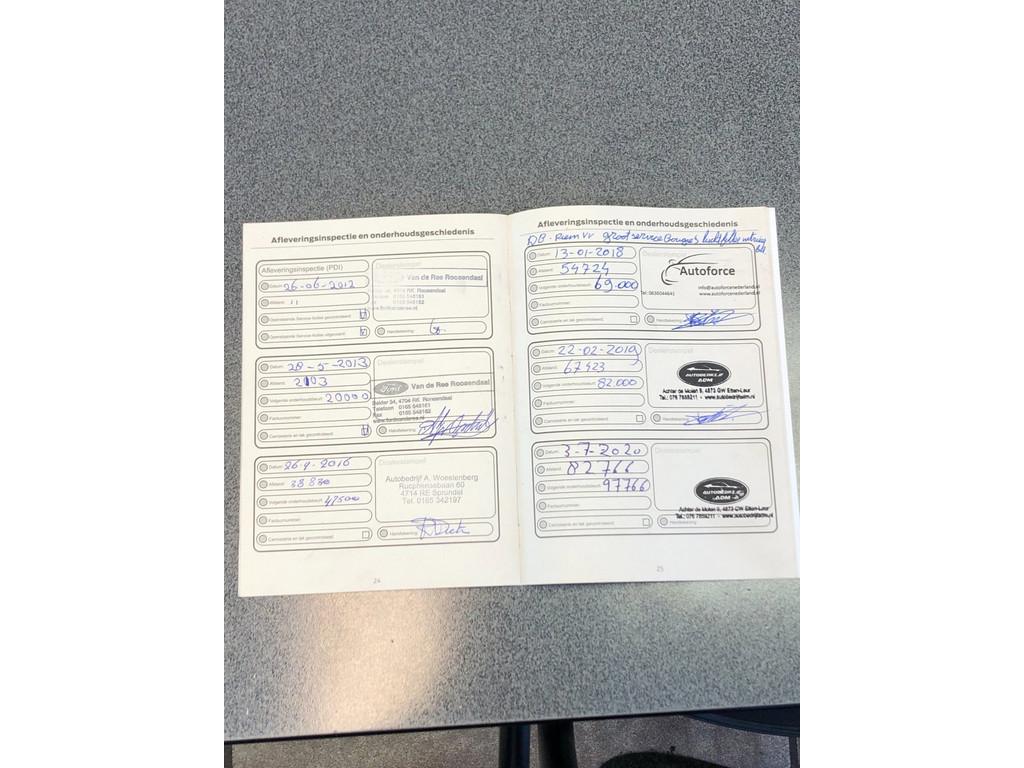 Afleveringsinspectie en onderhoudsgeschiedenis
Afleveringsinspectie (PDI)
Dealerstempel
Datum: 26-06-2012
Van den Ree Roosendaal
Afstand: 11
4704 RK Roosendaal
0165 548161
0165 548162
Geïnstalleerde Service-Acties uitgevoerd:
Handtekening:
Datum: 28-5-2013
Dealerstempel
Afstand: 2103
Ford
Van den Ree Roosendaal
Volgende onderhoudsbeurt: 20000
34, 4704 RK Roosendaal
Telefoon 0165 548161
Fax 0165 548162
Factuurnummer:
Carrosserie en lak gecontroleerd:
Handtekening:
Datum: 26-9-2016
Dealerstempel
Afstand: 38830
Autobedrijf A. Woestenberg
Volgende onderhoudsbeurt: 47500
Rucphensebaan 60
4714 RE Sprundel
Tel. 0165 342197
Factuurnummer:
Carrosserie en lak gecontroleerd:
Handtekening:
24
Afleveringsinspectie en onderhoudsgeschiedenis
groot service Bougies
Datum: 13-01-2018
Afstand: 54724
Autoforce
Volgende onderhoudsbeurt: 69.000
info@autoforcenederland.nl
Tel: 0630044641
www.autoforcenederland.nl
Factuurnummer:
Carrosserie en lak gecontroleerd:
Handtekening:
Datum: 22-02-2019
Dealerstempel
Afstand: 67423
AUTOBEDRIJF
ADM
Volgende onderhoudsbeurt: 82.000
Achter de Molen 9, 4873 GW Etten-Leur
Tel.: 076 7859211 - www.autobedrijfadm.nl
Factuurnummer:
Carrosserie en lak gecontroleerd:
Handtekening:
Datum: 3-7-2020
Dealerstempel
Afstand: 82766
Volgende onderhoudsbeurt: 97766
AUTOBEDRIJF
ADM
Factuurnummer:
Achter de Molen 9, 4873 GW Etten-Leur
Tel.: 076 7859211 - www.autobedrijfadm.nl
Carrosserie en lak gecontroleerd:
Handtekening:
25